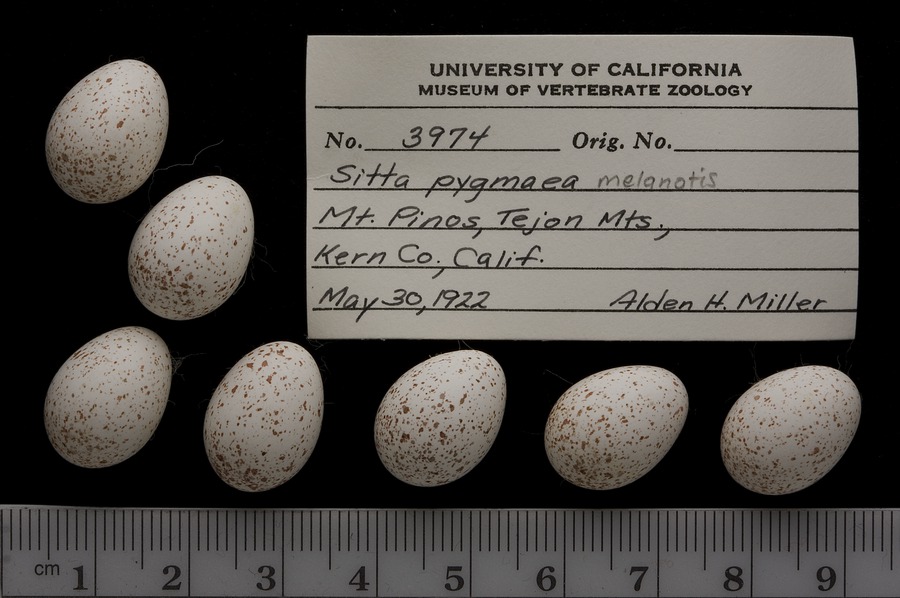 UNIVERSITY OF CALIFORNIA
MUSEUM OF VERTEBRATE ZOOLOGY
No. 3974 Orig. No.
Sitta pygmaea melanotis
Mt. Pinos, Tejon Mts.,
Kern Co., Calif.
May 30, 1922 Alden H. Miller
cm 1 2 3 4 5 6 7 8 9